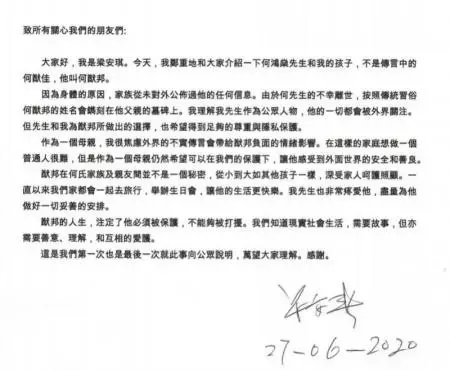 致所有關心我們的朋友們:
大家好，我是梁安琪。今天，我鄭重地和大家介紹一下何鴻燊先生和我的孩子，不是傳言中的
何猷佳，他叫何猷邦。
因為身體的原因，家族從未對外公佈過他的任何信息。由於何先生的不幸離世，按照傳統習俗
何猷邦的姓名會鐫刻在他父親的墓碑上。我理解我先生作為公眾人物，他的一切都會被外界關注。
但先生和我為猷邦所做出的選擇，也希望得到足夠的尊重與隱私保護。
作為一個母親，我很焦慮外界的不實傳言會帶給猷邦負面的情緒影響。在這樣的家庭想做一個
普通人很難，但是作為一個母親仍然希望可以在我們的保護下，讓他感受到外面世界的安全和善良。
猷邦在何氏家族及親友間並不是一個秘密，從小到大如其他孩子一樣，深受家人呵護照顧。一
直以來我們家都會一起去旅行，舉辦生日會，讓他的生活更快樂。我先生也非常疼愛他，盡量為他
做好一切妥善的安排。
猷邦的人生，注定了他必須被保護，不能夠被打擾。我們知道現實社會生活，需要故事，但亦
需要善意、理解，和互相的愛護。
這是我們第一次也是最後一次就此事向公眾說明，萬望大家理解。感謝。
27-06-2020